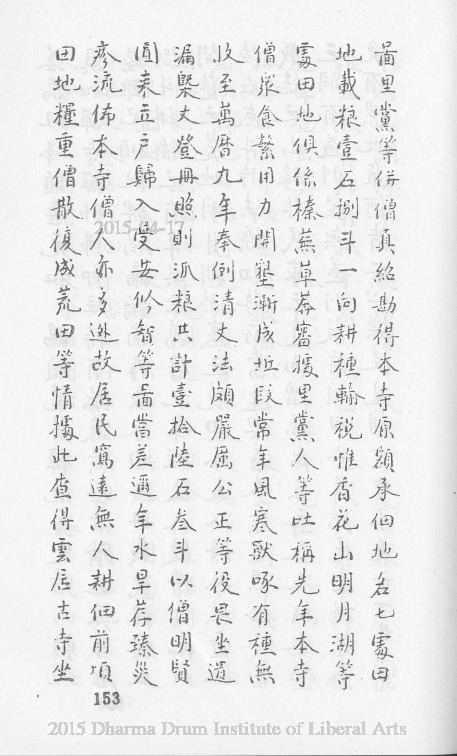 啚里黨等併僧真紹勘得本寺原額承佃地名七處田
地載粮壹石捌斗一向耕種輸税惟香花山明月湖等
處田地俱係榛蕪草莽審據里黨人等吐稱先年本寺
僧衆食繁用力開墾漸成坵段常年風寒獸啄有種無
收至萬曆九年奉例清丈法頗嚴厲公正等役畏坐遺
漏槩丈登冊照則派粮共計壹拾陸石叁斗以僧明賢
圓來立戶歸入受安似智等啚當差邇年水旱荐臻災
疹流佈本寺僧人亦多逊故居民窵遠無人耕佃前項
田地糧重僧散復成荒田等情據此查得雲居古寺坐
153
2015-04-17
2015 Dharma Drum Institute of Liberal Arts